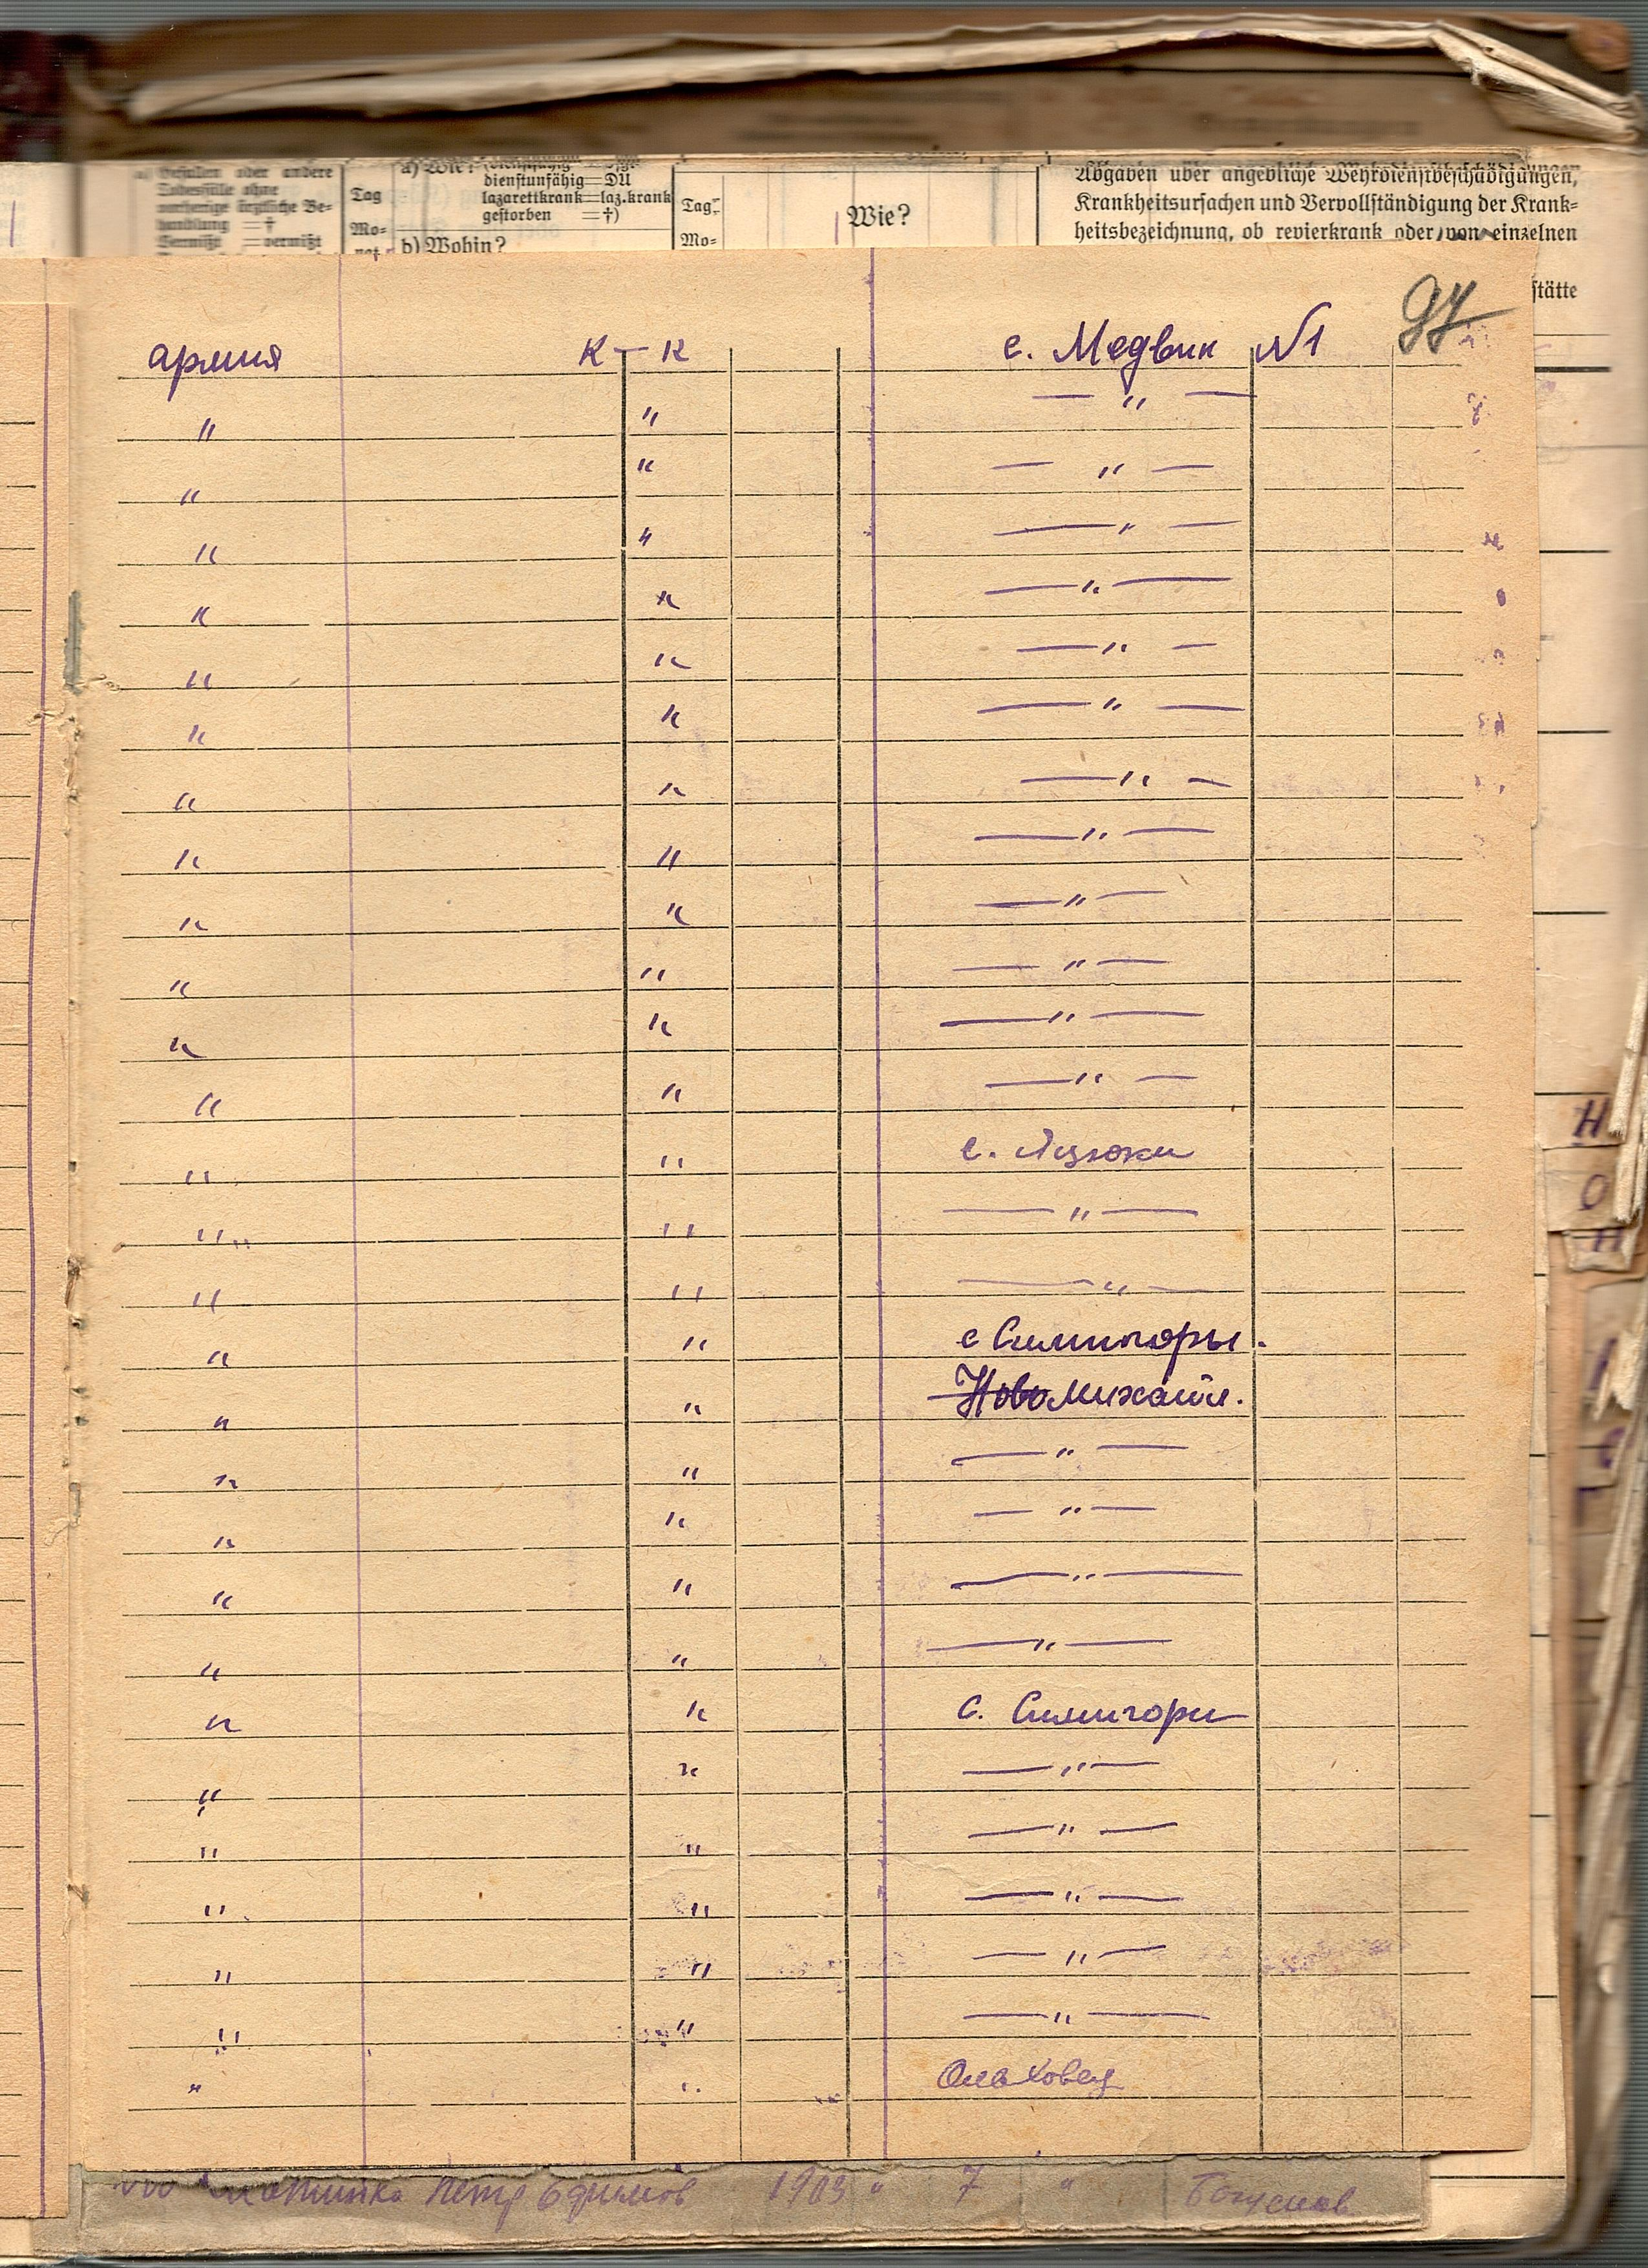 Gefallen oder andere
Todesfälle ohne
vorherige ärztliche Be-
handlung =†
Vermißt =vermißt
Tag
Mo-
nat
a) Wie?
dienstunfähig=DU
lazarettkrank=laz.krank
gestorben =†)
b) Wohin?
Tag
Mo-
Wie?
Abgaben über angebliche Wehrdienstbeschädigungen,
Krankheitsursachen und Vervollständigung der Krank-
heitsbezeichnung, ob revierkrank oder von einzelnen
stätte
97
армия К-К с. Медвин №1
" " — " —
" " — " —
" " — " —
" " — " —
" " — " —
" " — " —
" " — " —
" " — " —
" " — " —
" " — " —
" " — " —
" " — " —
" " с. Яцюки
" " — " —
" " — " —
" " с Симигоры.
" " Новомихайл.
" " — " —
" " — " —
" " — " —
" " — " —
" " С. Симигори
" " — " —
" " — " —
" " — " —
" " — " —
" " — " —
" " Ольховец
Петр Ефимов 1903 " 7 " Богуслав
Н
О
Н